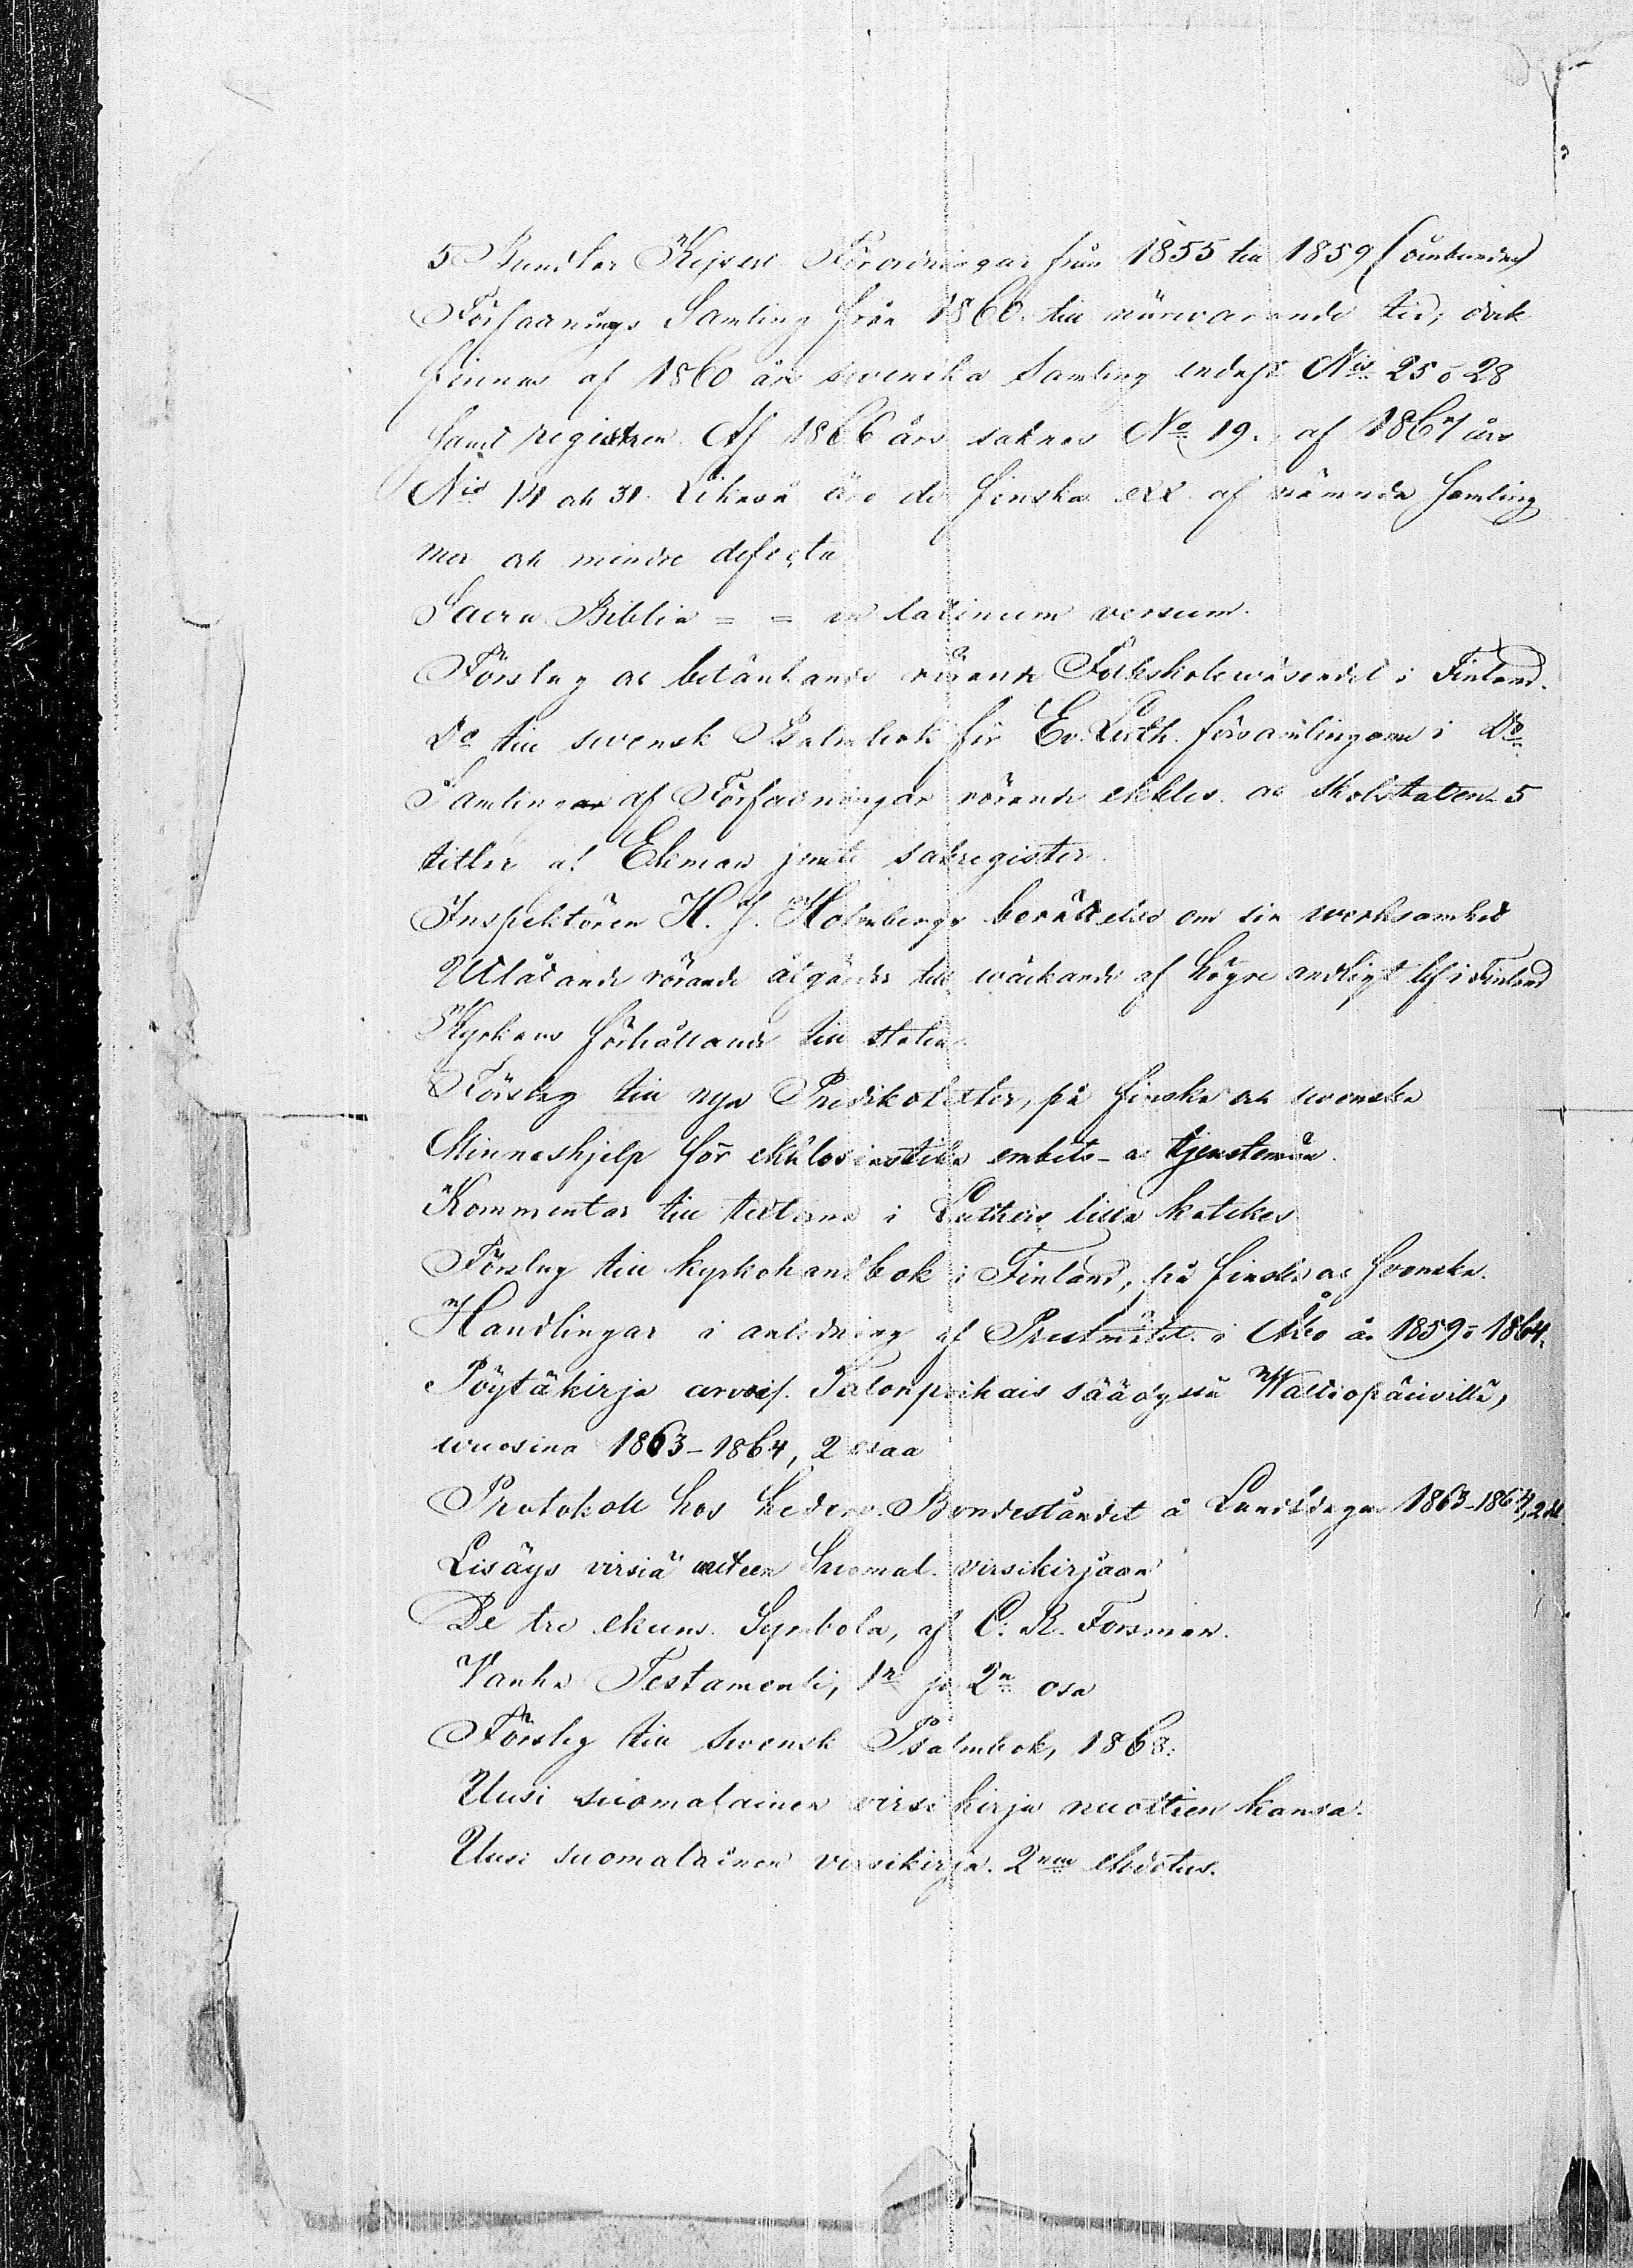 5 Bundlar Kejserl Förordningar från 1855 till 1859 (oinbundna)
Författnings Samling från 1860 till närwarande tid, dock
finnes af 1860 års swenska Samling endast N:is 25 o 28
samt registren. Af 1866 års saknas N:o 19. af 1867 års
N:is 14 och 31. Likaså äro de finska exx. af nämnda samling
mer och mindre defecta
Sacra Biblia = = in latinum versum.
Förslag och betänkande rörande Folkskolewäsendet i Finland.
D:o till swensk Psalmbok för Ev. Luth. församlingarna i D:o
Samlingar af Författningar rörande eckles. och Skolstaten 5
titlar af Ekman jemte sakregister.
Inspektören H. J. Holmbergs berättelse om sin werksamhet
Utlåtande rörande åtgärder till wäckande af högre andligt lif i Finland
Kyrkans förhållande till staten.
Förslag till nya Predikotexter, på finska och swenska
Minneshjelp för ekklesiastika embets- o tjenstemän.
Kommentar till texterna i Luthers lilla katekes
Förslag till kyrkohandbok i Finland, på finska och Svenska.
Handlingar i anledning af Prestmötet i Åbo år 1859 o 1864.
Pöytäkirja arvois. Talonpoikais säädyssä Waltiopäiwillä,
wuosina 1863-1864, 2 osaa
Protokoll hos hederv. Bondeståndet å Landtdagen 1863-1864, 2 dl.
Lisäys virsiä uuteen Suomal. virsikirjaan
De tre ekum. Symbola, af C. R. Forsman.
Vanha Testamenti, 1n ja 2n osa
Förslag till Swensk Psalmbok, 1868.
Uusi suomalainen virsi kirja nuottien kansa.
Uusi suomalainen virsikirja. 2nen ehdotus.